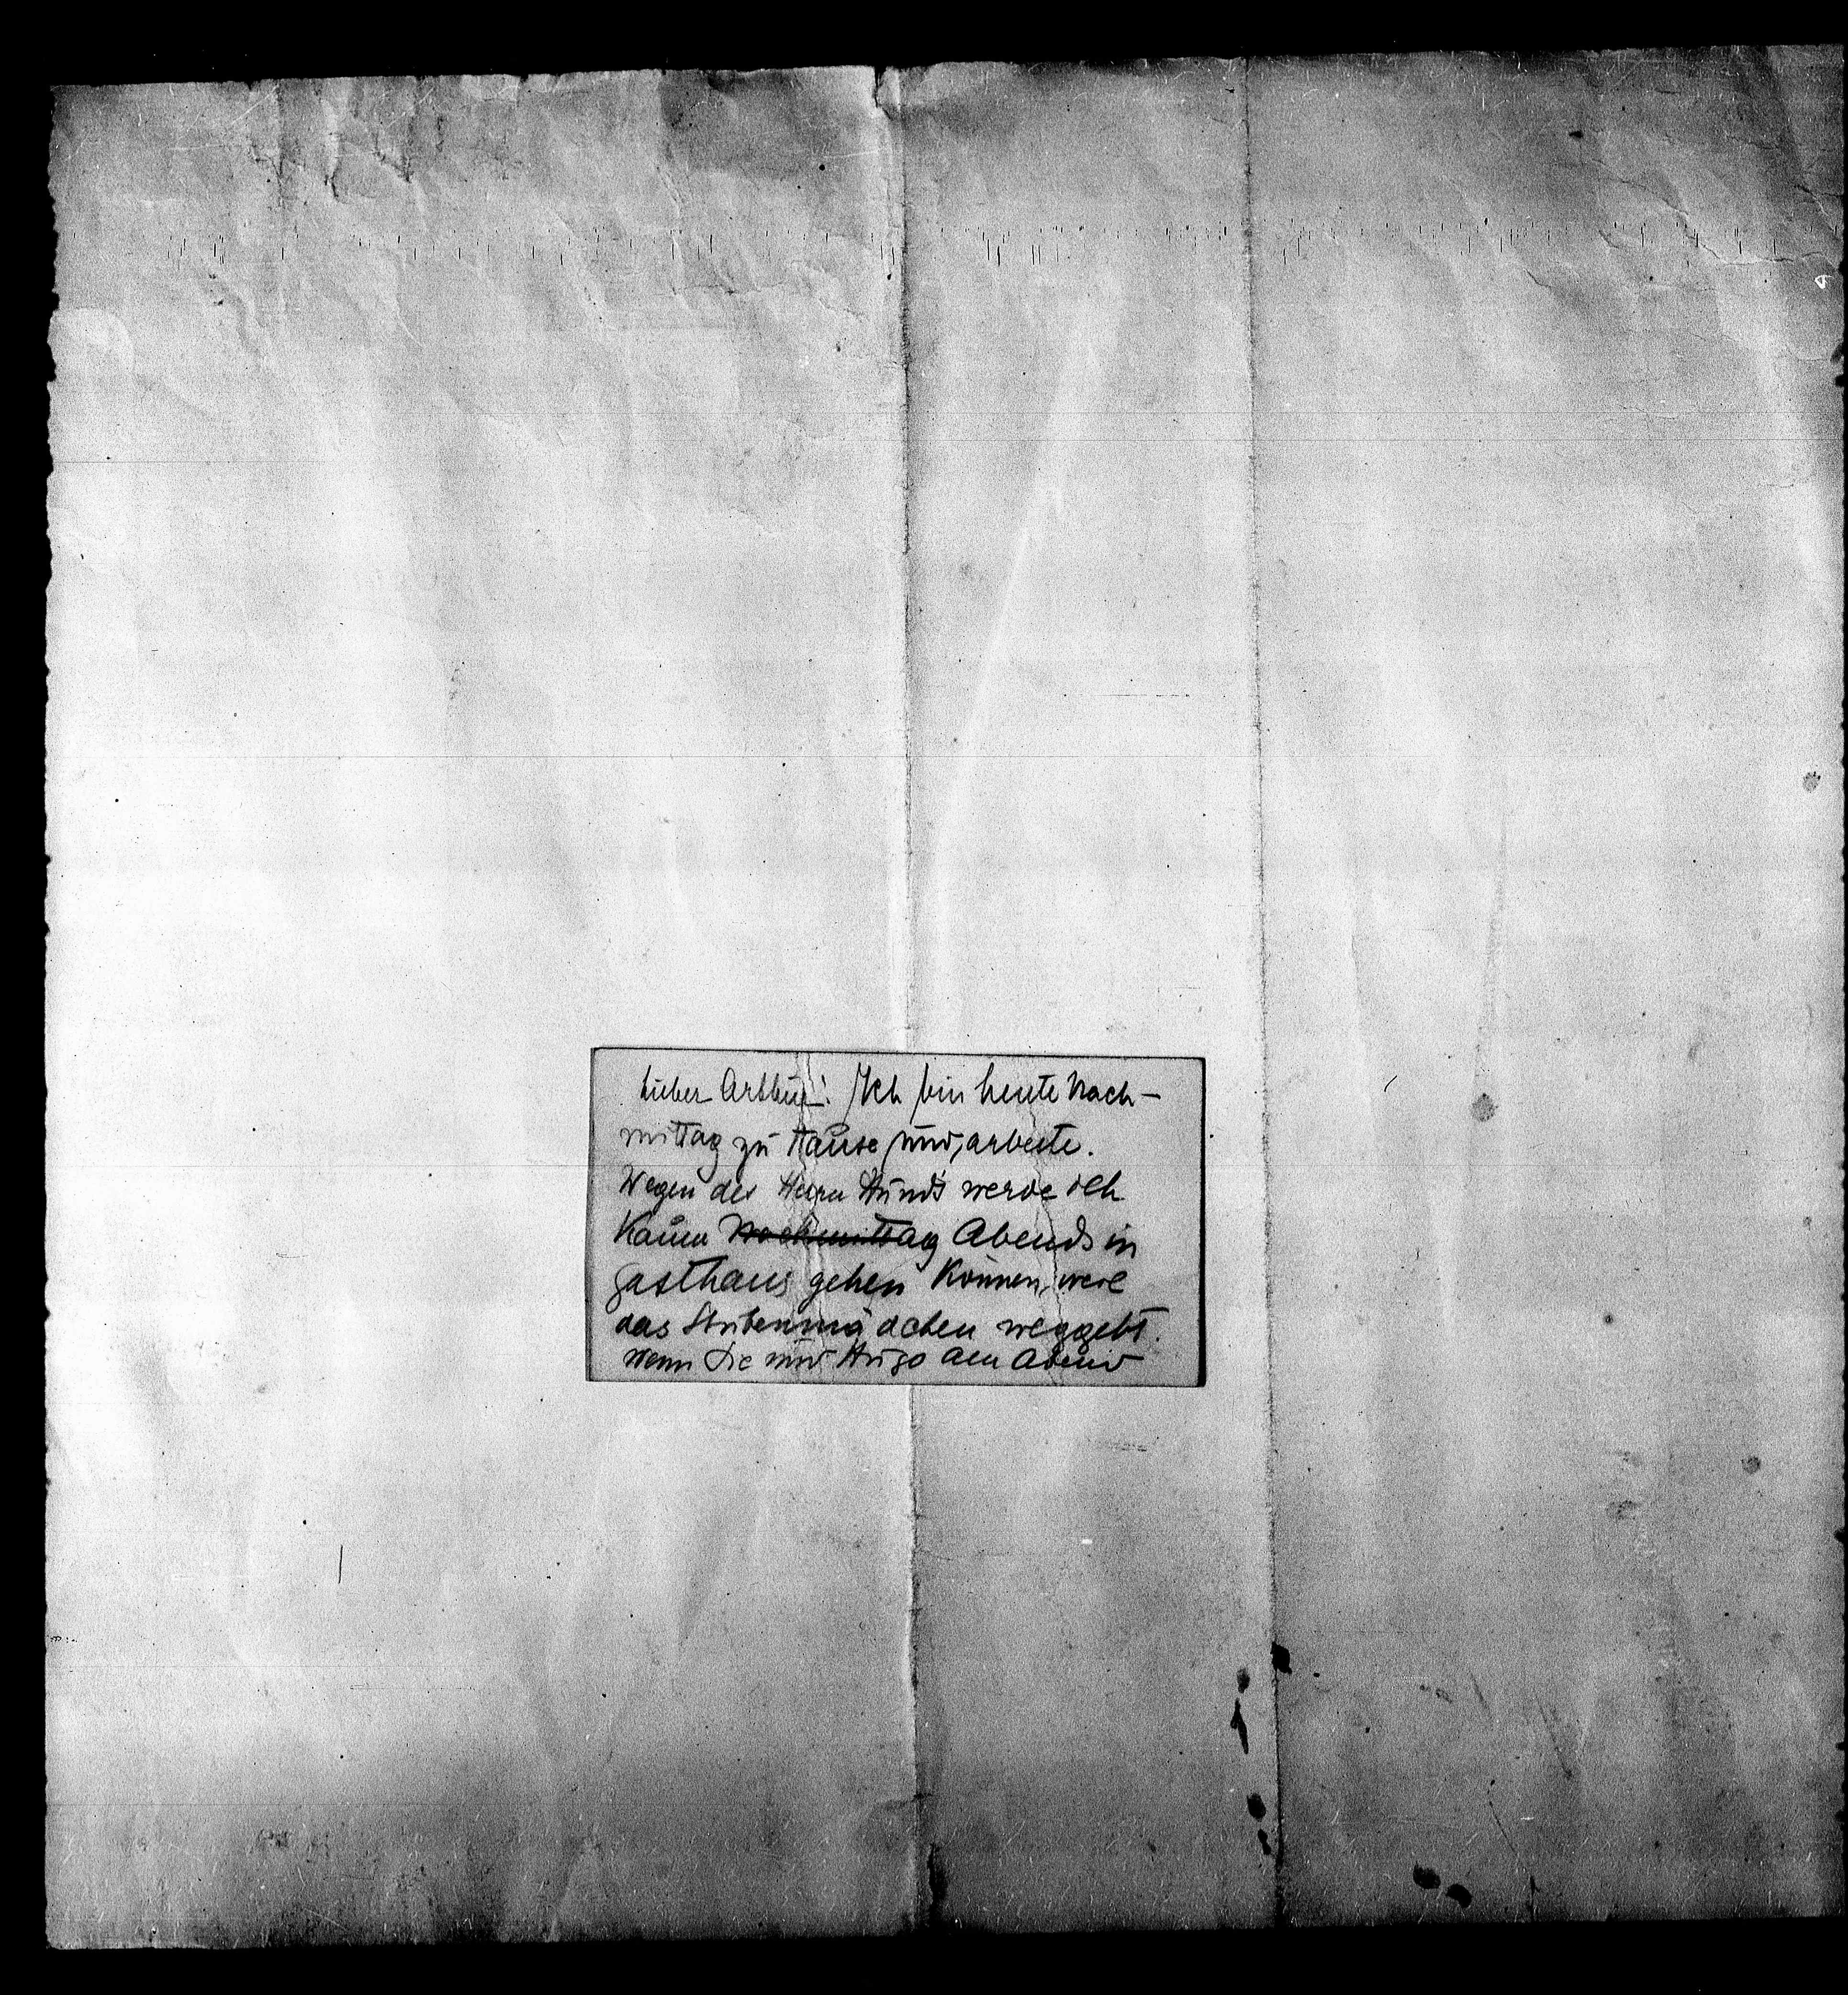 Lieber Arthur! Ich bin heute Nach-
mittag zu Hause und, arbeite.
Wegen des Herrn Hunds werde ich
kaum Nachmittag Abends in
Gasthaus gehen können, weil
das Stubenmädchen weggeht.
Wenn Sie und Hugo am Abend